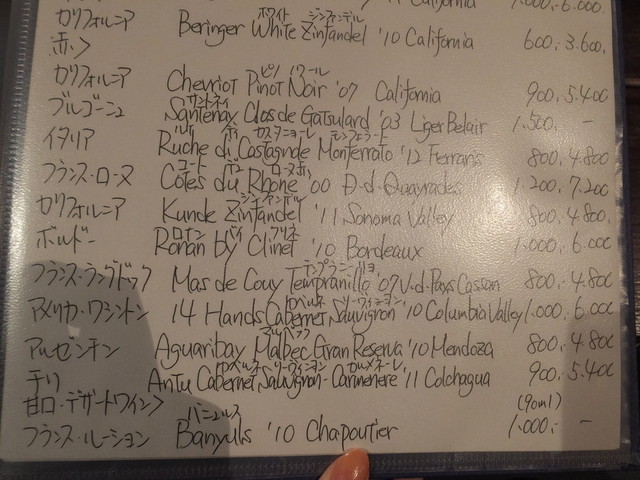 California 1,000.-6.000
カリフォルニア Beringer White Zinfandel '10 California 600.-3.600.
ホワイト ジンファンデル
赤>
カリフォルニア Chevriot Pinot Noir '07 California 900.-5.400
ピノ ノワール
ブルゴーニュ Santenay Clos de Gatsulard '03 Liger Belair 1.500.-
サントネイ
イタリア Ruche di Castagnole Monferrato '12 Ferraris 800.-4.800
ルケ ディ カスタニョーレ モンフェラート
フランス・ローヌ Côtes du Rhône '00 D.d.Quayrades 1.200.-7.200
コート デュ ローヌ赤
カリフォルニア Kunde Zinfandel '11 Sonoma Valley 800.-4.800.
ジンファンデル
ボルドー Ronan by Clinet '10 Bordeaux 1.000.-6.000
ロナン バイ クリネ
フランス・ラングドック Mas de Couy Tempranillo '07 V.d.Pays Cassan 800.-4.800
テンプラニーリョ
アメリカ・ワシントン 14 Hands Cabernet Sauvignon '10 Columbia Valley 1.000.-6.000
カベルネ ソーヴィニヨン
アルゼンチン Aguaribay Malbec Gran Reserva '10 Mendoza 800.-4.800
マルベック
チリ Antu Cabernet Sauvignon-Carmenere '11 Colchagua 900.-5.400
カベルネ ソーヴィニヨン カルメネーレ
甘口・デザートワイン> (90ml)
フランス・ルーション Banyuls '10 Chapoutier 1.000.-
バニュルス